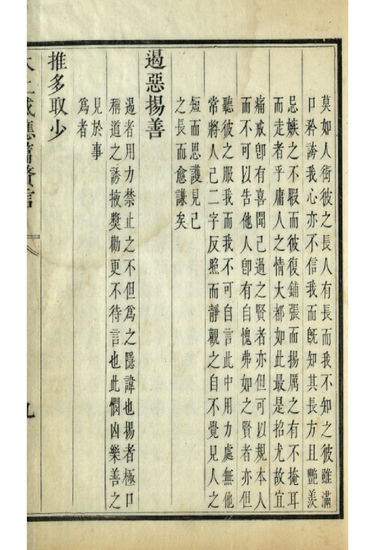 莫如人衒彼之長人有長而我不知之彼雖滿
口矜誇我心亦不信我而旣知其長方且艷羨
忌嫉之不暇而彼復鋪張而揚厲之有不掩耳
而走者乎庸人之情大都如此最是招尤故宜
痛戒卽有喜聞己過之賢者亦但可以規本人
而不可以告他人卽有自愧弗如之賢者亦但
聽彼之服我而我不可自言此中用力處無他
常將人己二字反照而靜觀之自不覺見人之
短而思護見己
之長而愈謙矣
遏惡揚善
遏者用力禁止之不但爲之隱諱也揚者極口
稱道之誘掖獎勸更不待言也此憫凶樂善之
見於事
爲者
推多取少
太上感應篇贅言
九